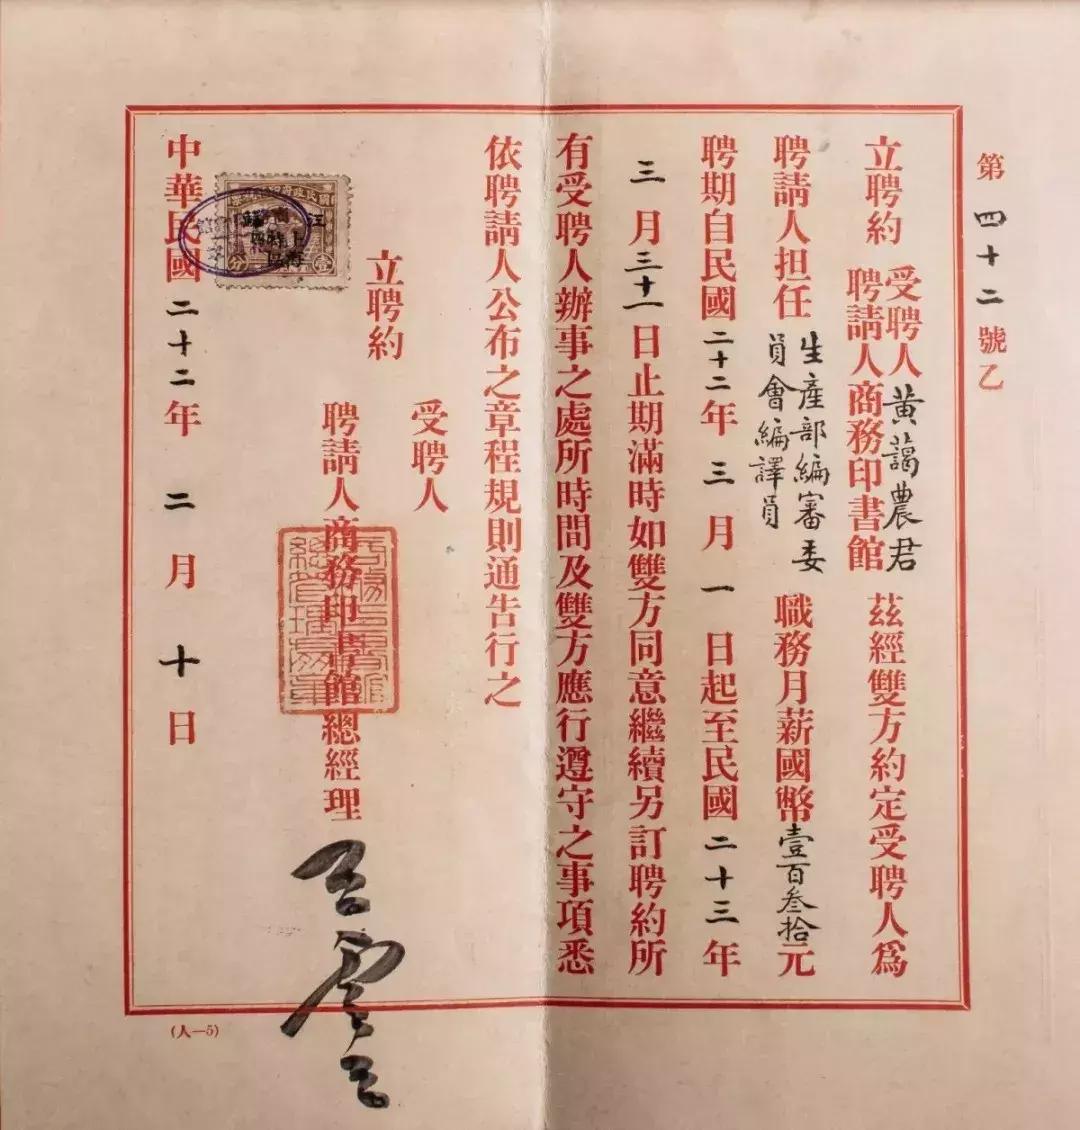 第四十二號乙
立聘約
受聘人黃藹農君
聘請人商務印書館
茲經雙方約定受聘人爲
聘請人担任
生產部編審委
員會編譯員
職務月薪國幣壹百叁拾元
聘期自民國二十二年三月一日起至民國二十三年
三月三十一日止期滿時如雙方同意繼續另訂聘約所
有受聘人辦事之處所時間及雙方應行遵守之事項悉
依聘請人公布之章程規則通告行之
立聘約
受聘人
聘請人商務印書館總經理
王雲五
中華民國二十二年二月十日
(人—5)